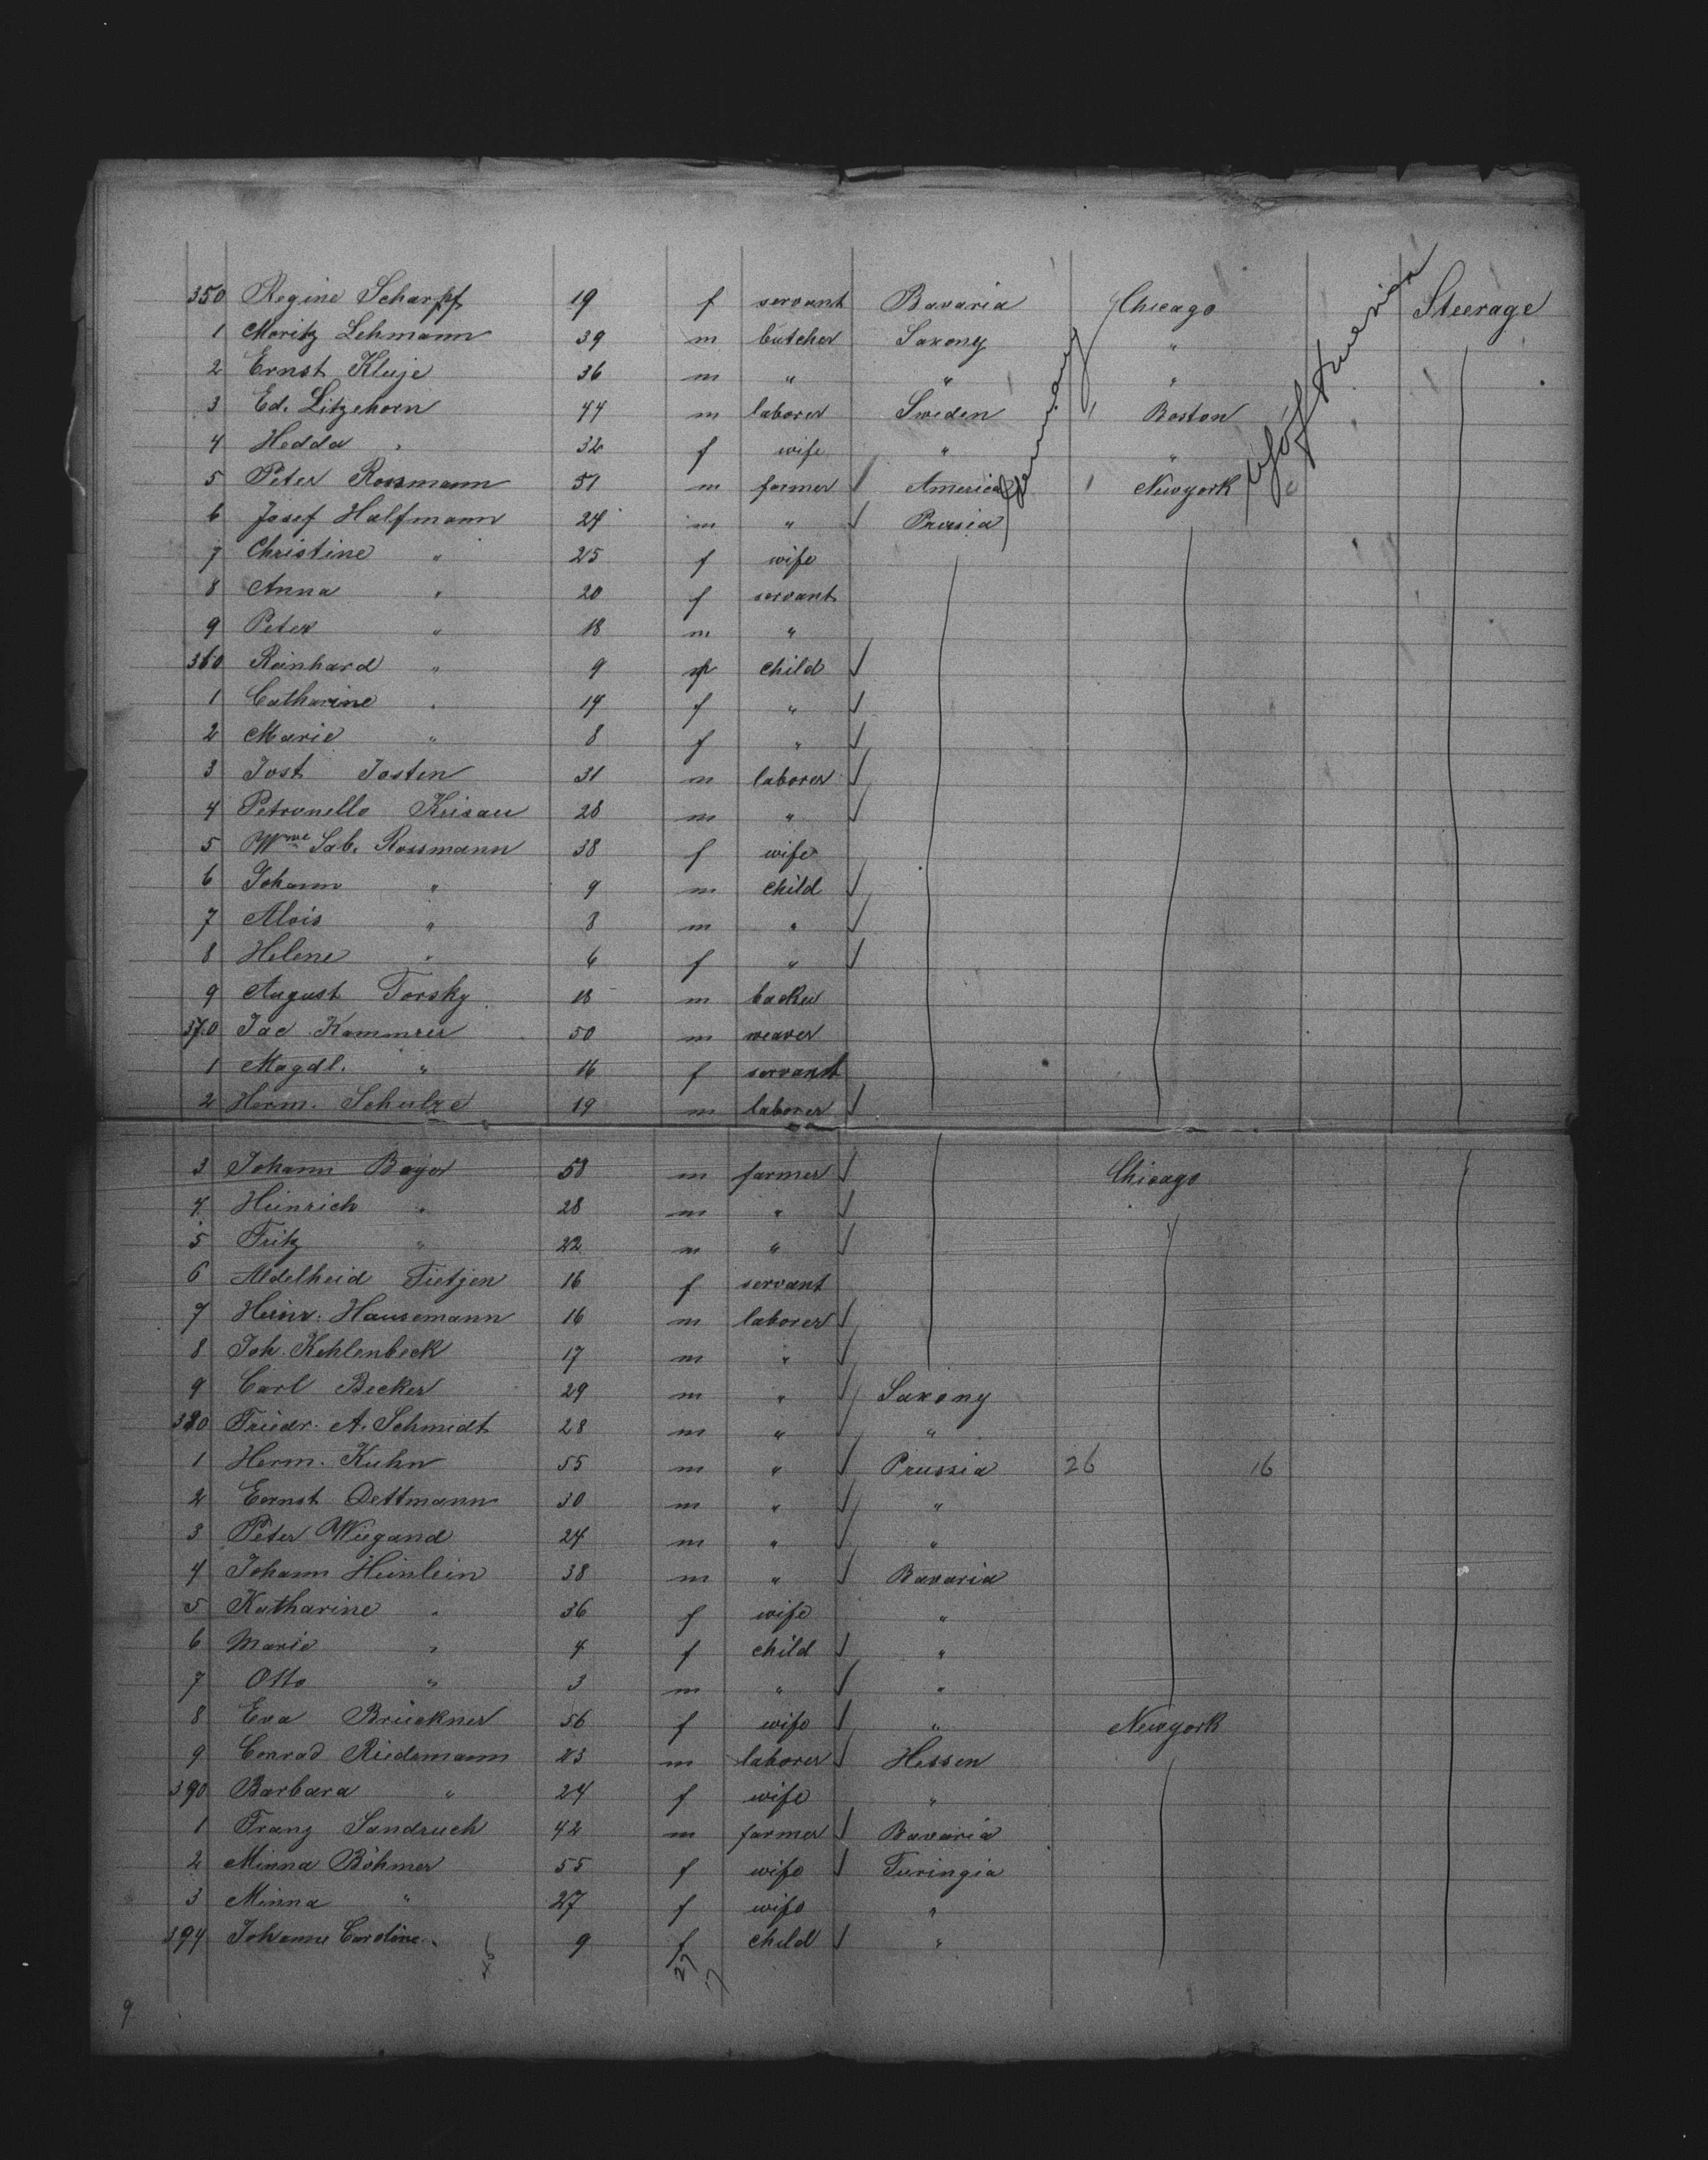 350 Regine Scharpf 19 f servant Bavaria Chicago Steerage
1 Moritz Lehmann 39 m butcher Saxony "
2 Ernst Kluje 36 m " " "
3 Ed. Litzehorn 44 m laborer Sweden Boston
4 Hedda " 32 f wife " "
5 Peter Rossmann 51 m farmer America Newyork
6 Josef Halfmann 24 m " Prusia
7 Christine " 25 f wife
8 Anna " 20 f servant
9 Peter " 18 m "
360 Reinhard " 9 child
1 Catharine " 14 f "
2 Marie " 8 f "
3 Jost Josten 31 m laborer
4 Petronello Krisau 28 m "
5 Wwe Sab. Rossmann 38 f wife
6 Johann " 9 m child
7 Alois " 8 m "
8 Helene " 6 f "
9 August Torsky 18 m backer
370 Jac Kammrer 50 m weaver
1 Magdl. " 16 f servant
2 Herm. Schulze 19 m laborer
3 Johann Boyer 58 m farmer Chicago
4 Heinrich " 28 m "
5 Fritz " 22 m "
6 Aldelheid Tietjen 16 f servant
7 Heinr. Hausemann 16 m laborer
8 Joh. Kehlenbeck 17 m "
9 Carl Becker 29 m " Saxony
380 Friedr. A. Schmidt 28 m " "
1 Herm. Kuhn 55 m " Prussia 26 16
2 Eernst Dettmann 30 m " "
3 Peter Wiegand 24 m " "
4 Johann Heinlein 38 m " Bavaria
5 Katharine " 36 f wife "
6 Marie " 4 f child "
7 Otto " 3 m " "
8 Eva Brückner 56 f wife " Newyork
9 Conrad Riedemann 23 m laborer Hessen
390 Barbara " 24 f wife "
1 Franz Sandruch 42 m farmer Bavaria
2 Minna Böhmer 55 f wife Turingia
3 Minna " 27 f wife "
394 Johanne Caroline " 9 f child "
27
17
9
Germany
U S of America